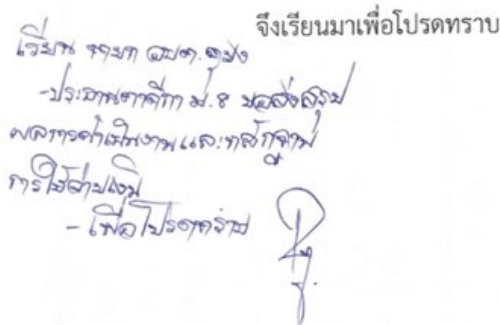 จึงเรียนมาเพื่อโปรดทราบ
เรียน นายก อบต.
-ประธานกาชีกา ม.8 ขอส่งสรุป
ผลการดำเนินงานและหลักฐาน
การใช้จ่ายเงิน
- เพื่อโปรดทราบ